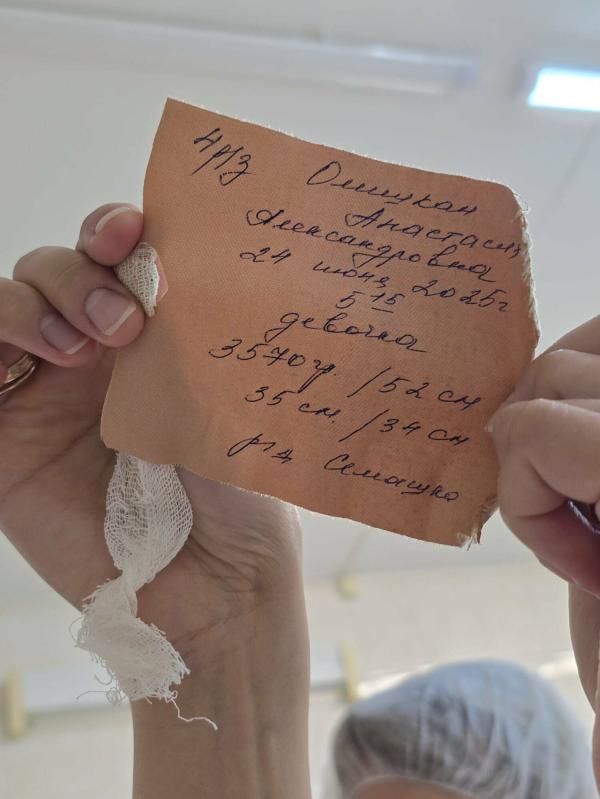 Анастасия
Александровна
24 июня 2025г
5 15
девочка
3570 гр. / 52 см
35 см. / 34 см
р/д Семашко